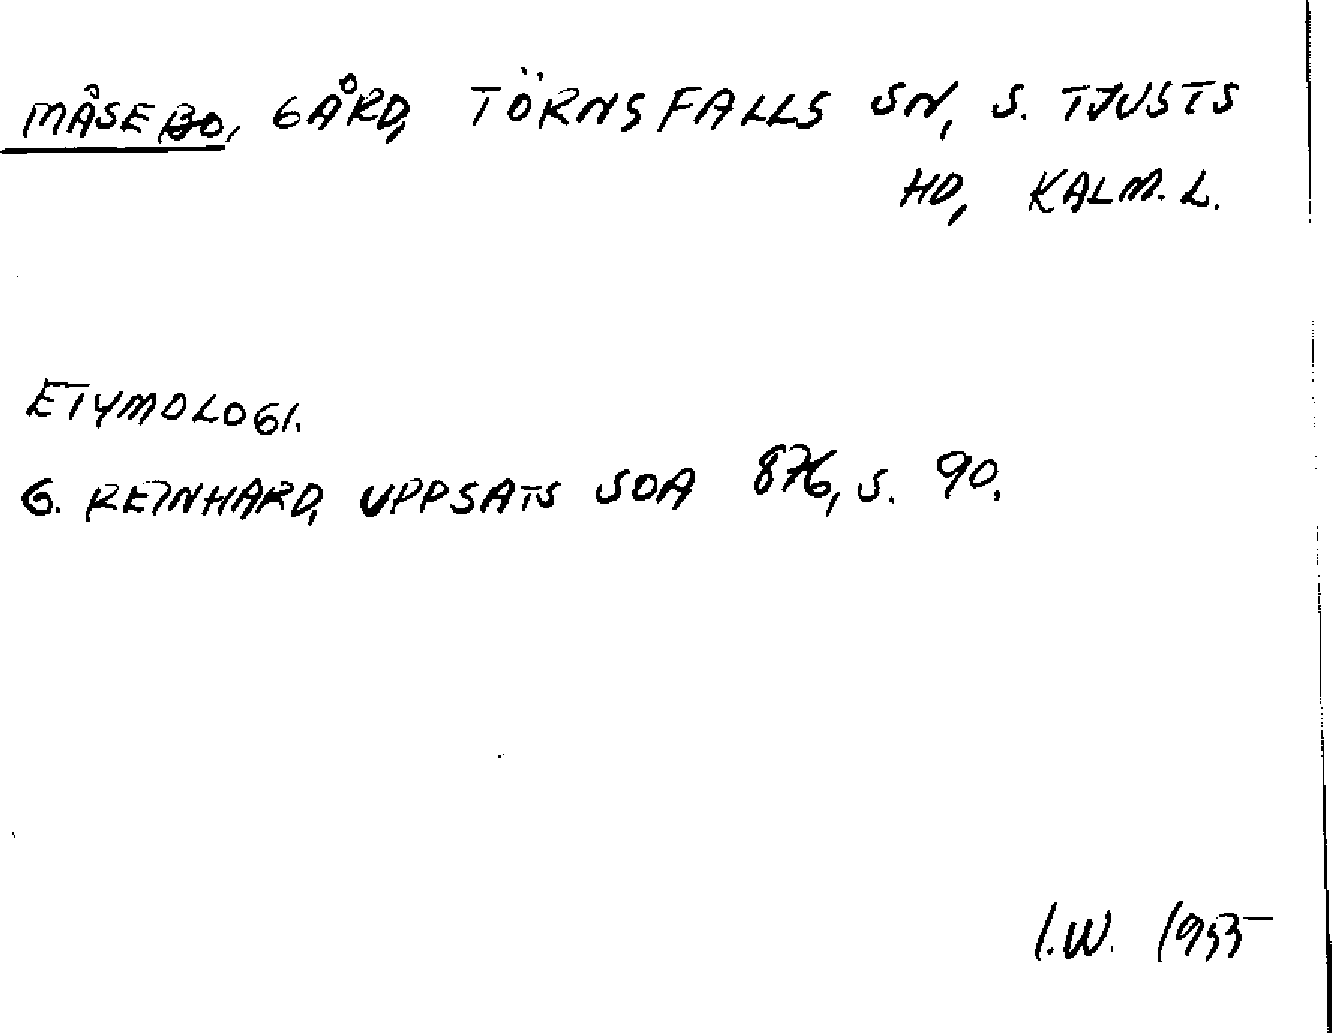 MÅSEBO, GÅRD, TÖRNSFALLS SN, S. TJUSTS
HD, KALM. L.
ETYMOLOGI.
G. REINHARD, UPPSATS SOA 876, S. 90.
I.W. 1955